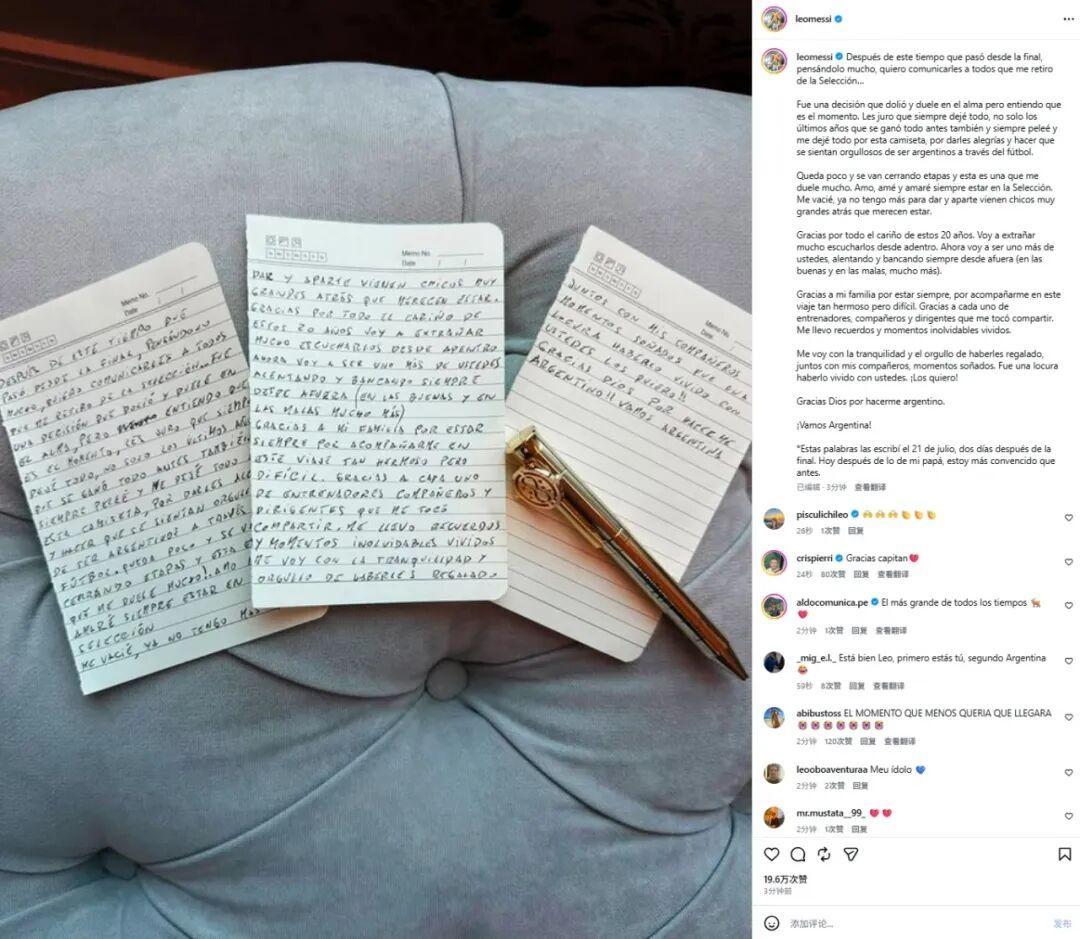 Memo No.
Date / /
DESPUES DE ESTE TIEMPO QUE
PASÓ DESDE LA FINAL, PENSÁNDOLO
MUCHO, QUIERO COMUNICARLES A TODOS
QUE ME RETIRO DE LA SELECCIÓN... FUE
UNA DECISIÓN QUE DOLIÓ Y DUELE EN
EL ALMA, PERO ENTIENDO QUE
ES EL MOMENTO, LES JURO QUE SIEMPRE
DEJÉ TODO, NO SOLO LOS ULTIMOS AÑOS
QUE SE GANÓ TODO ANTES TAMBIÉN
SIEMPRE PELEÉ Y ME DEJÉ TODO
ESTA CAMISETA, POR DARLES
Y HACER QUE SE SIENTAN
DE SER ARGENTINOS A TRAVÉS
FÚTBOL. QUEDA POCO Y SE
CERRANDO ETAPAS Y ESTA
QUE ME DUELE MUCHO!! AMO
AMARÉ SIEMPRE ESTAR EN
SELECCIÓN
ME VACIÉ, YA NO TENGO
Memo No.
Date / /
DAR Y APARTE VIENEN CHICOS MUY
GRANDES ATRÁS QUE MERECEN ESTAR.
GRACIAS POR TODO EL CARIÑO DE
ESTOS 20 AÑOS VOY A EXTRAÑAR
MUCHO ESCUCHARLOS DESDE ADENTRO
AHORA VOY A SER UNO MÁS DE USTEDES
ALENTANDO Y BANCANDO SIEMPRE
DESDE AFUERA (EN LAS BUENAS Y EN
LAS MALAS MUCHO MÁS)
GRACIAS A MI FAMILIA POR ESTAR
SIEMPRE POR ACOMPAÑARME EN
ESTE VIAJE TAN HERMOSO PERO
DIFÍCIL. GRACIAS A CADA UNO
DE ENTRENADORES COMPAÑEROS Y
DIRIGENTES QUE ME TOCÓ
COMPARTIR. ME LLEVO RECUERDOS
Y MOMENTOS INOLVIDABLES VIVIDOS
ME VOY CON LA TRANQUILIDAD Y
ORGULLO DE HABERLES REGALADO
Memo No.
Date
JUNTOS CON MIS COMPAÑEROS
MOMENTOS SOÑADOS FUE UNA
LOCURA HABERLO VIVIDO CON
USTEDES LOS QUIERO!!
GRACIAS DIOS POR HACERME
ARGENTINO!! VAMOS ARGENTINA
leomessi
leomessi Después de este tiempo que pasó desde la final,
pensándolo mucho, quiero comunicarles a todos que me retiro
de la Selección...
Fue una decisión que dolió y duele en el alma pero entiendo que
es el momento. Les juro que siempre dejé todo, no solo los
últimos años que se ganó todo antes también y siempre peleé y
me dejé todo por esta camiseta, por darles alegrías y hacer que
se sientan orgullosos de ser argentinos a través del fútbol.
Queda poco y se van cerrando etapas y esta es una que me
duele mucho. Amo, amé y amaré siempre estar en la Selección.
Me vacié, ya no tengo más para dar y aparte vienen chicos muy
grandes atrás que merecen estar.
Gracias por todo el cariño de estos 20 años. Voy a extrañar
mucho escucharlos desde adentro. Ahora voy a ser uno más de
ustedes, alentando y bancando siempre desde afuera (en las
buenas y en las malas, mucho más).
Gracias a mi familia por estar siempre, por acompañarme en este
viaje tan hermoso pero difícil. Gracias a cada uno de
entrenadores, compañeros y dirigentes que me tocó compartir.
Me llevo recuerdos y momentos inolvidables vividos.
Me voy con la tranquilidad y el orgullo de haberles regalado,
juntos con mis compañeros, momentos soñados. Fue una locura
haberlo vivido con ustedes. ¡Los quiero!
Gracias Dios por hacerme argentino.
¡Vamos Argentina!
*Estas palabras las escribí el 21 de julio, dos días después de la
final. Hoy después de lo de mi papá, estoy más convencido que
antes.
已编辑 · 3分钟 查看翻译
pisculichileo
26秒 1次赞 回复
crispierri Gracias capitan
24秒 80次赞 回复 查看翻译
aldocomunica.pe El más grande de todos los tiempos
2分钟 1次赞 回复 查看翻译
_mig_e.l._ Está bien Leo, primero estás tú, segundo Argentina
59秒 8次赞 回复 查看翻译
abibustoss EL MOMENTO QUE MENOS QUERIA QUE LLEGARA
2分钟 120次赞 回复 查看翻译
leooboaventuraa Meu ídolo
2分钟 2次赞 回复
mr.mustata__99_
2分钟 1次赞 回复
19.6万次赞
3分钟前
添加评论...
发布